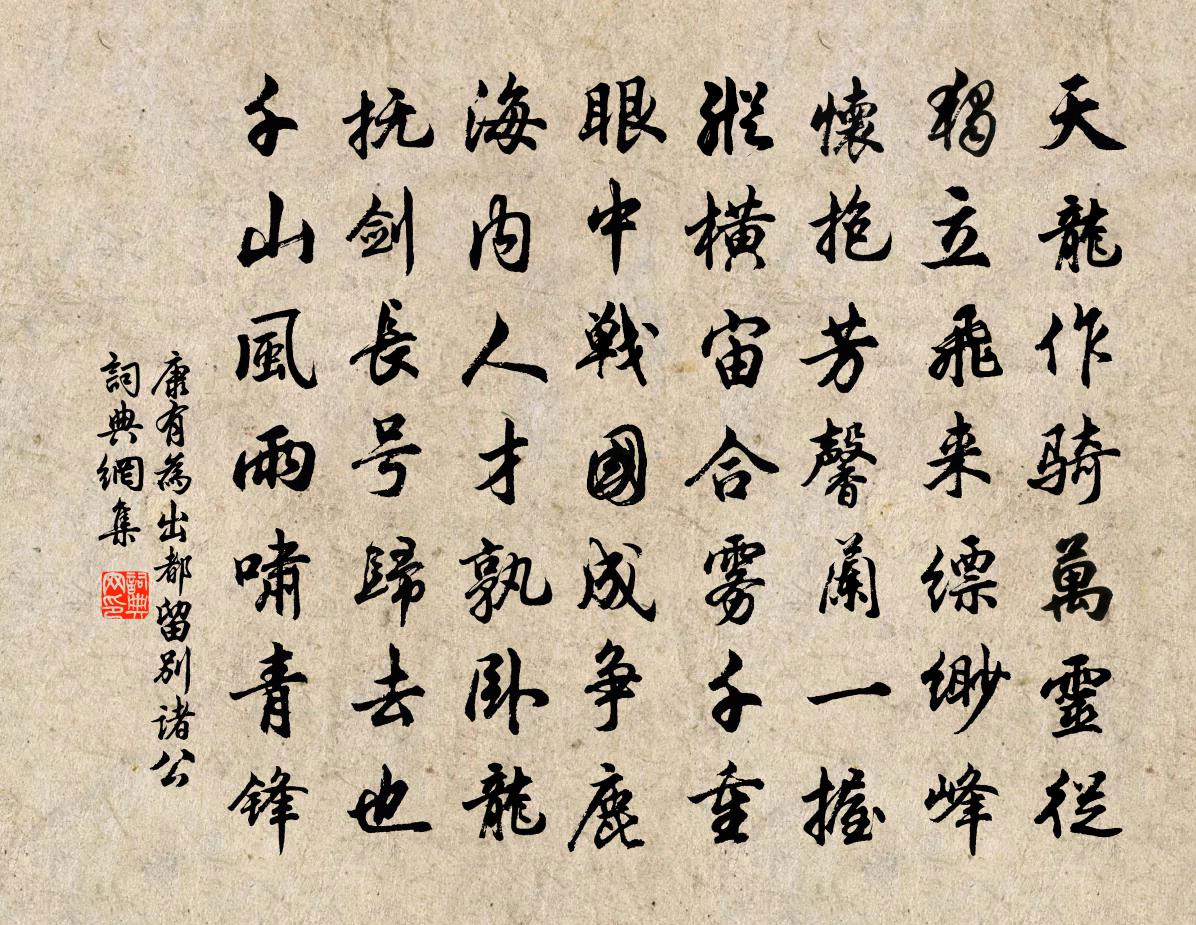 天龍作騎萬靈從
獨立飛来縹緲峰
懷抱芳馨蘭一握
縱橫宙合雾千重
眼中戰國成争鹿
海内人才孰卧龍
抚剑長号歸去也
千山風雨啸青鋒
康有為出都留别诸公
詞典網集
詞典网印